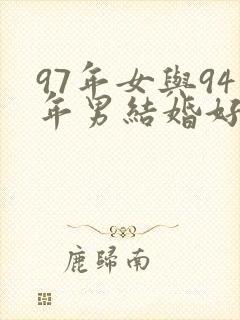 97年女與94
年男結婚好
鹿歸南